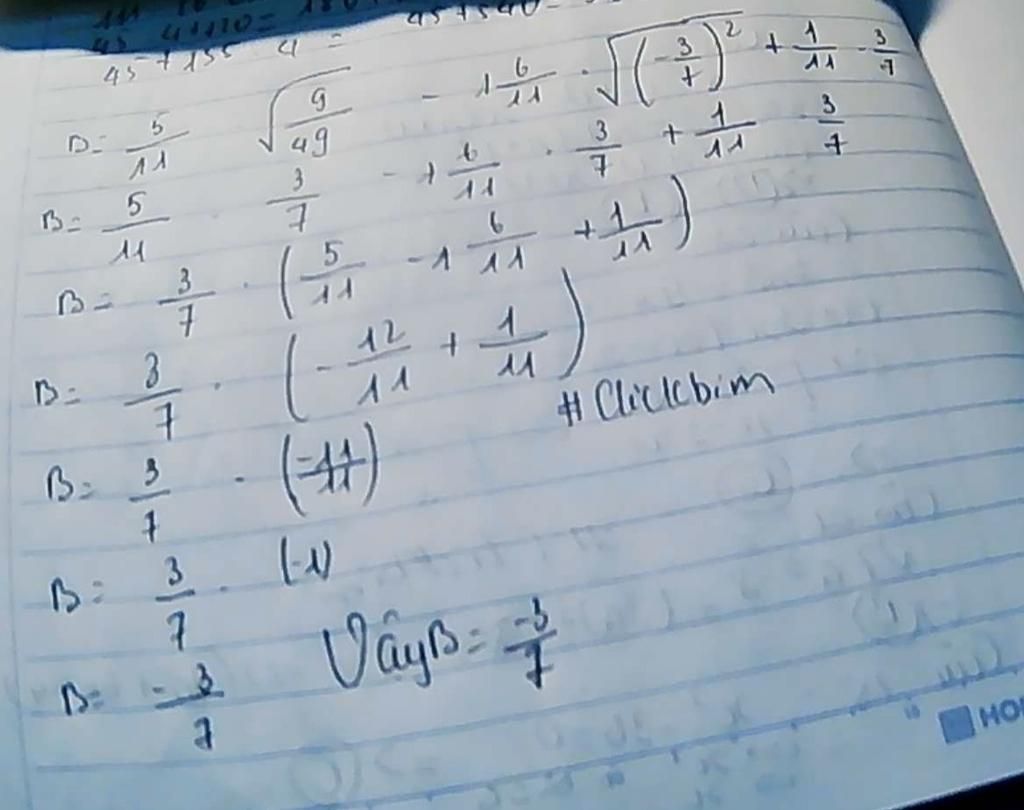 B = 5/11 √(9/49) - 1 6/11 · √((-3/7)²) + 1/11 · 3/7
B = 5/11 · 3/7 - 1 6/11 · 3/7 + 1/11 · 3/7
B = 3/7 · (5/11 - 1 6/11 + 1/11)
B = 3/7 · (-12/11 + 1/11)
#Clickbim
B = 3/7 · (-11/11)
B = 3/7 · (-1)
Vây B = -3/7
B = -3/7
HO